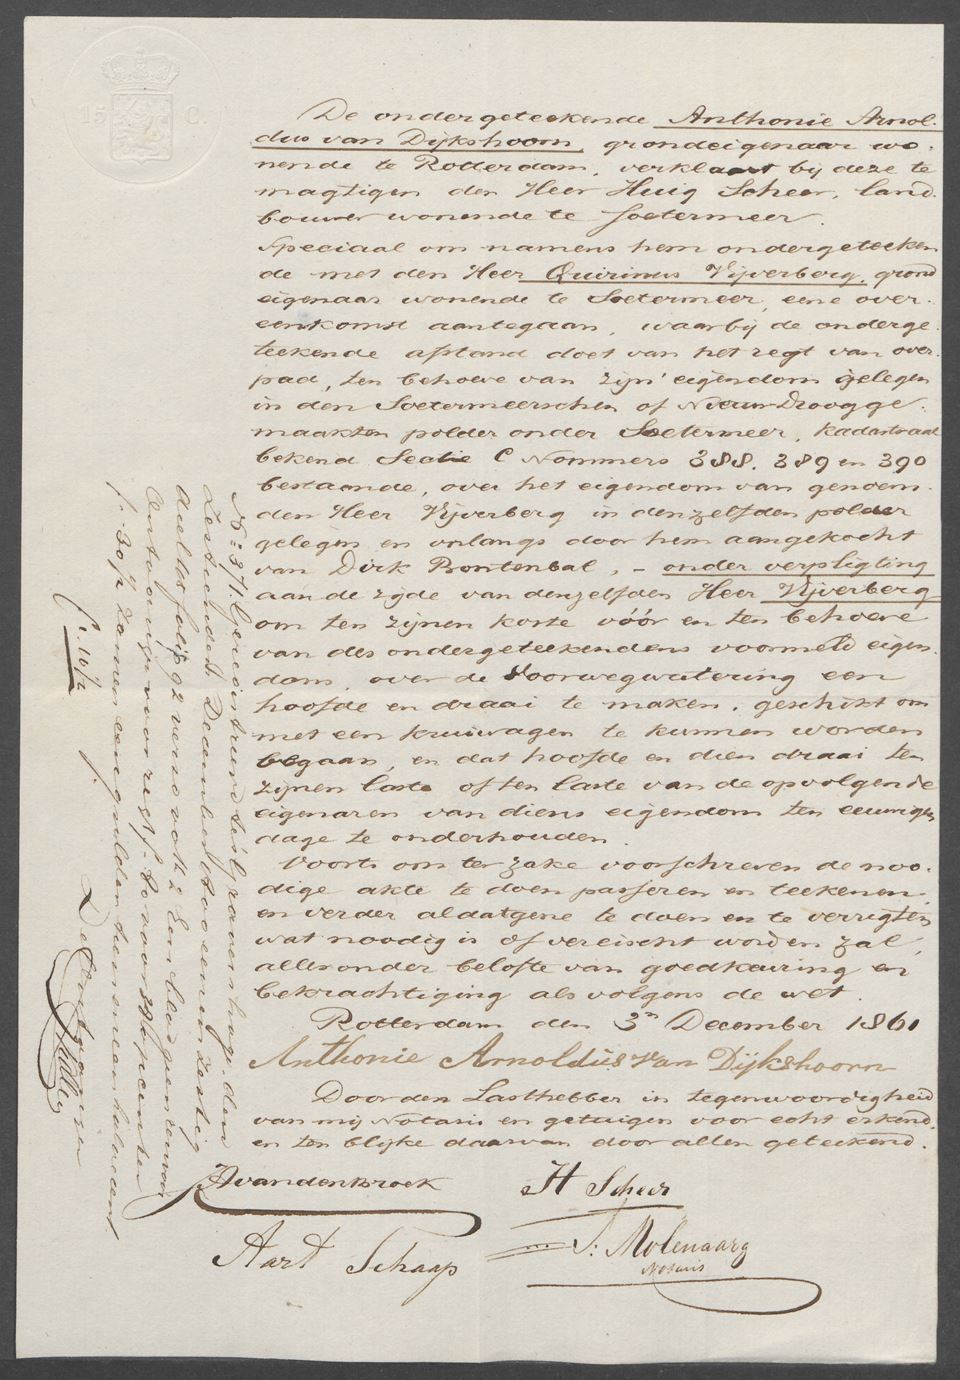 15 C.
De ondergeteekende Anthonie Arnol-
dus van Dijkshoorn, grondeigenaar wo-
nende te Rotterdam, verklaart bij deze te
magtigen den Heer Huig Scheer, land-
bouwer wonende te Soetermeer.
Speciaal om namens hem ondergeteeken
de met den Heer Quirinus Vijverberg, grond
eigenaar wonende te Soetermeer, eene over-
eenkomst aantegaan, waarbij de onderge-
teekende afstand doet van het regt van over-
pad, ten behoeve van zijn' eigendom gelegen
in den Soetermeerschen of Nieuw-Droogge-
maakten polder onder Soetermeer, kadastraal
bekend Sectie C Nommers 388. 389 en 390
bestaande, over het eigendom van genoem-
den Heer Vijverberg in denzelfden polder
gelegen en onlangs door hem aangekocht
van Dirk Bontenbal, - onder verpligting
aan de zijde van denzelfden Heer Vijverberg
om ten zijnen koste vóór en ten behoeve
van des ondergeteekendens voormeld eigen-
dom, over de Voorwegwatering een
hoofde en draai te maken, geschikt om
met een kruiwagen te kunnen worden
begaan, en dat hoofde en dien draai ten
zijnen laste of ten laste van de opvolgende
eigenaren van diens eigendom ten eeuwigen
dage te onderhouden.
Voorts om ter zake voorschreven de noo-
dige akte te doen passeren en teekenen,
en verder al datgene te doen en te verrigten
wat noodig is of vereischt worden zal,
alles onder belofte van goedkeuring en
bekrachtiging als volgens de wet.
Rotterdam den 3n December 1861
Anthonie Arnoldus van Dijkshoorn
Door den Lasthebber in tegenwoordigheid
van mij Notaris en getuigen voor echt erkend
en ten blijke daarvan door allen geteekend.
Avandenbroek
H Scheer
Aart Schaap
J: Molenaar
Notaris
No 371. Geregistreerd te 's Gravenhage, den
Zestienden December 1800 een en zestig
deel folio 92 verso vak 2 Een blad geen renvooi
Ontvangen voor regt f. 80 voor 38 opcenten
f. 30½ zamen een gulden tien en een halve cent.
f 1.10½
De Ontvanger